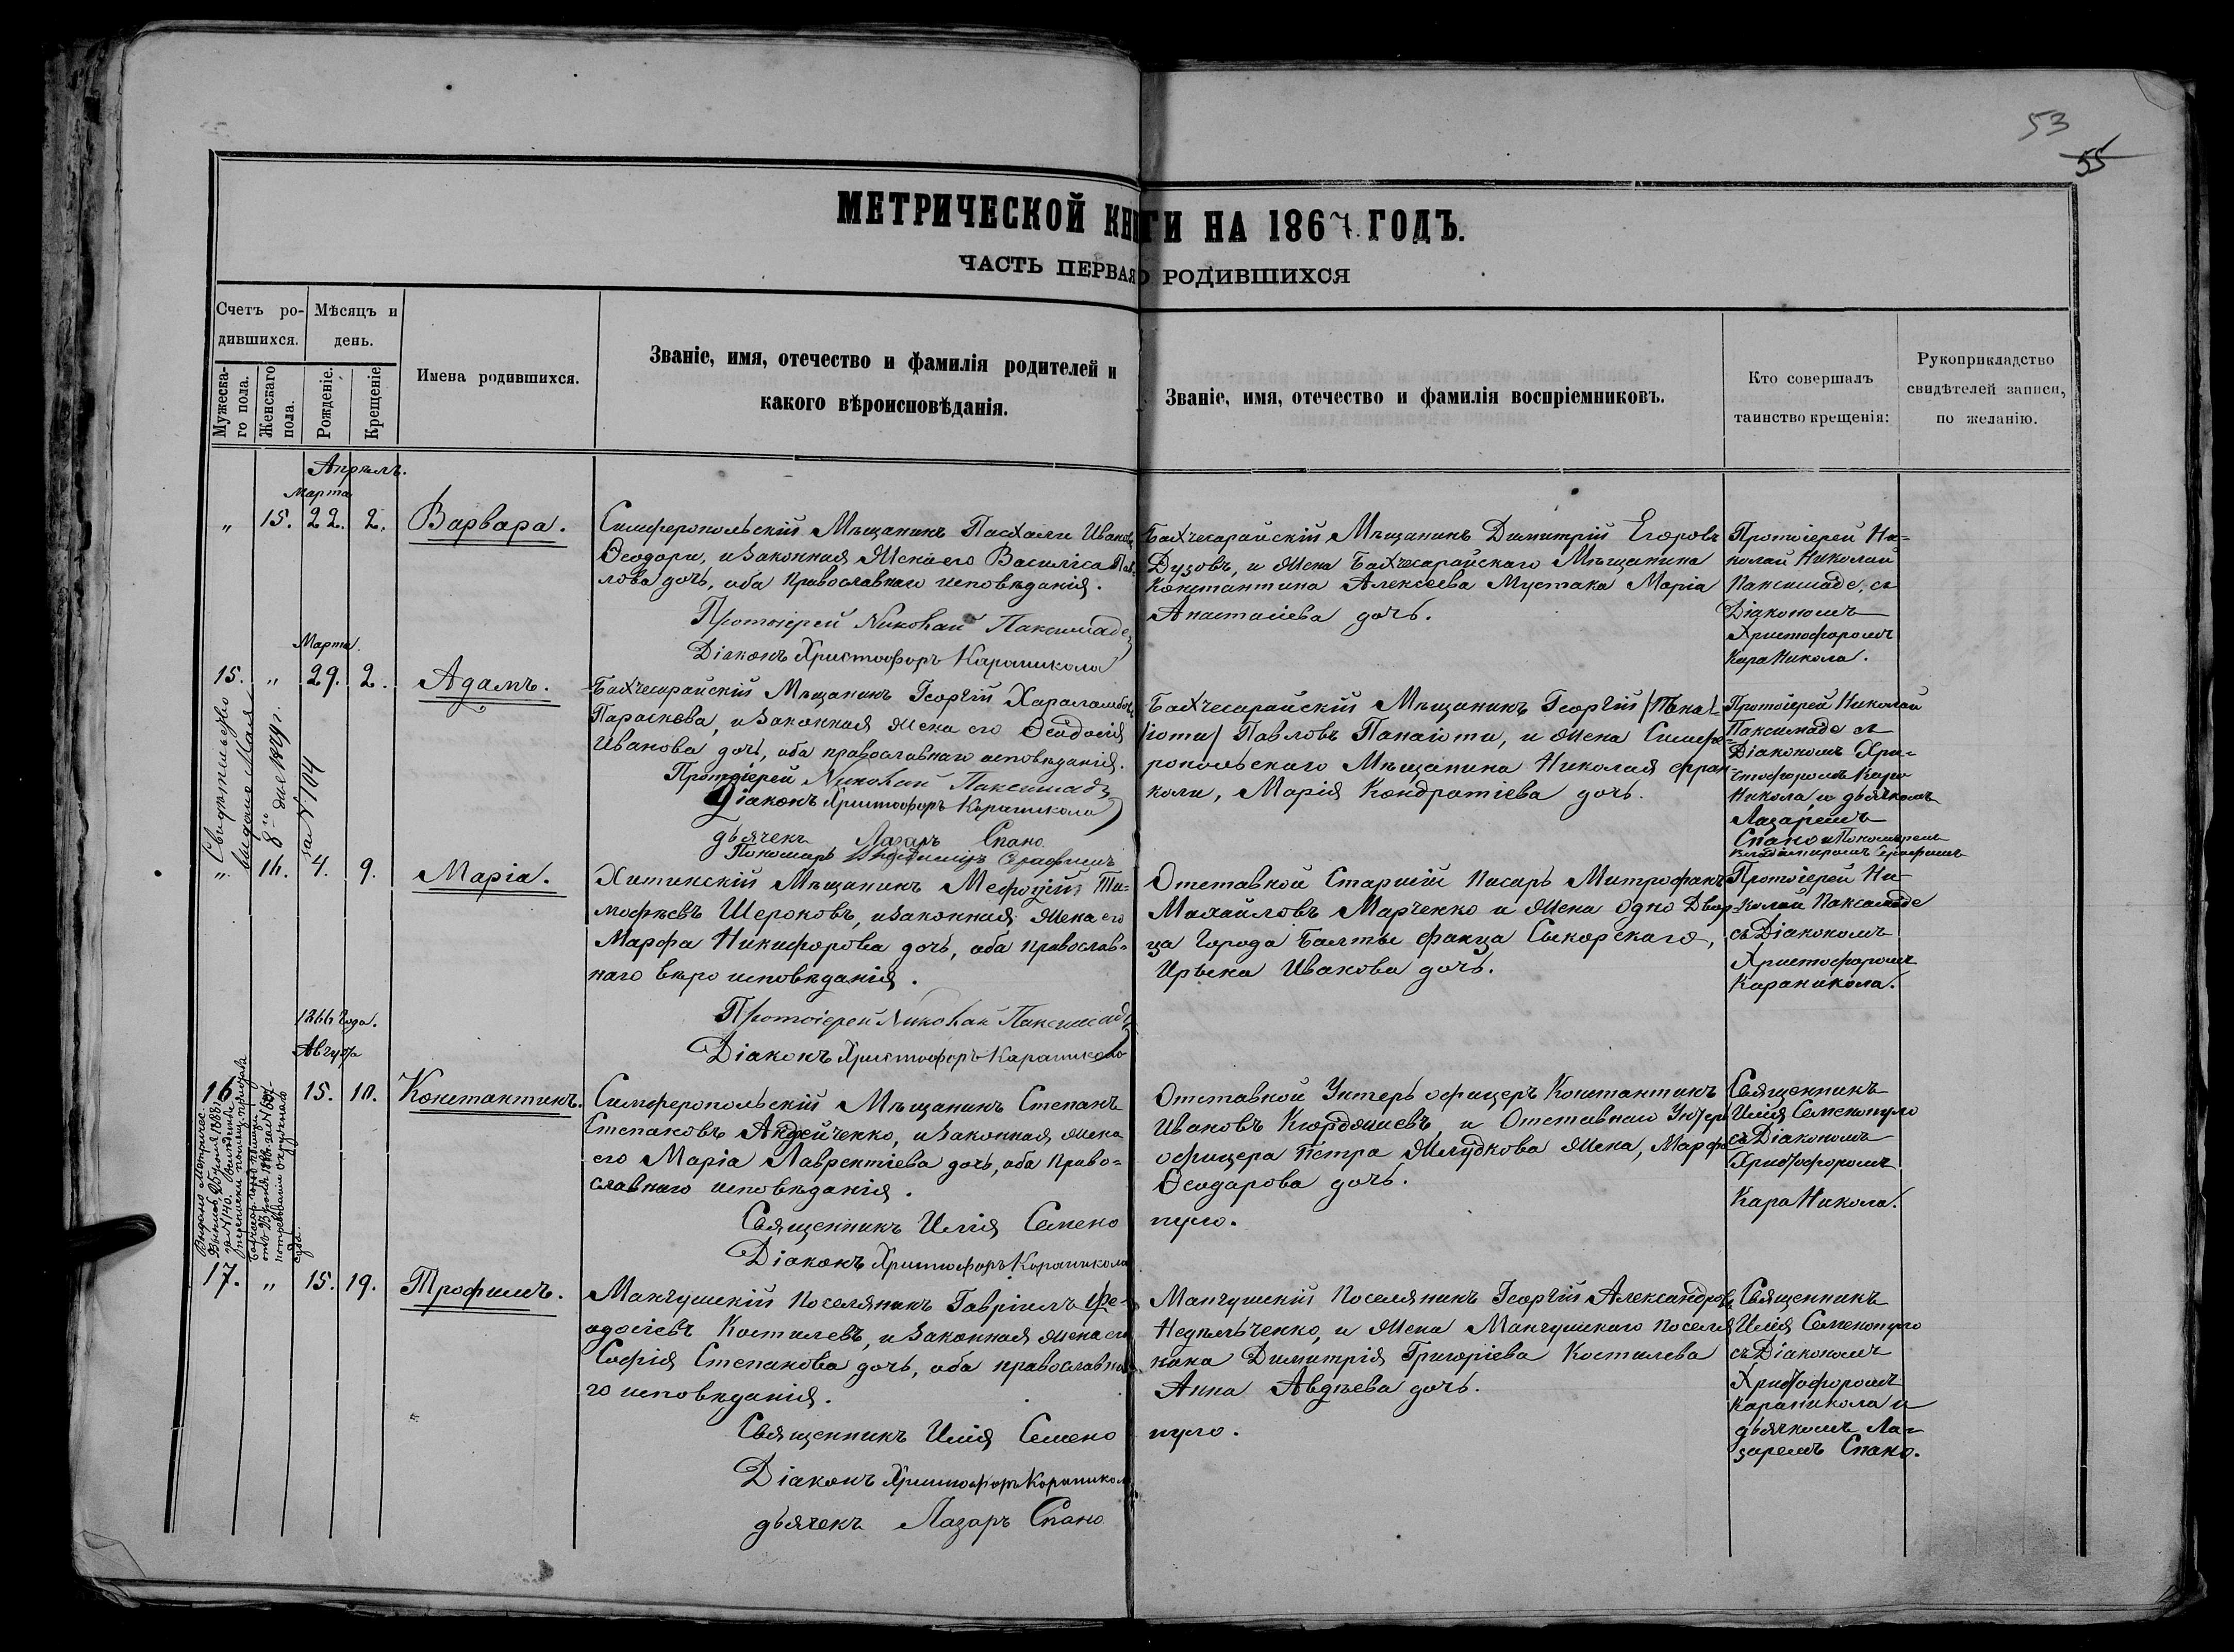 53
55
МЕТРИЧЕСКОЙ КНИГИ НА 1867 ГОДЪ.
ЧАСТЬ ПЕРВАЯ О РОДИВШИХСЯ
Счетъ ро-
дившихся.
Мужеска-
го пола.
Женскаго
пола.
Мѣсяцъ и
день.
Рожденіе.
Крещеніе
Имена родившихся.
Званіе, имя, отечество и фамилія родителей и
какого вѣроисповѣданія.
Званіе, имя, отечество и фамилія воспріемниковъ.
Кто совершалъ
таинство крещенія:
Рукоприкладство
свидѣтелей записи,
по желанію.
Апрѣль.
Марта
" 15. 22. 2. Варвара.
Симферопольскій Мѣщанинъ Пасхали Ивановъ
Ѳеодори, и законная Жена его Василіса Пав-
лова дочь, оба православнаго исповѣданія.
Протоіерей Николай Паксимаде
Діаконъ Христофоръ Караникола
Бахчесарайскій Мѣщанинъ Димитрій Егоровъ
Дузовъ, и Жена Бахчесарайскаго Мѣщанина
Константина Алексеева Мустака Марія
Анастасіева дочь.
Протоіерей Ни-
колай Николай
Паксимаде, съ
Діакономъ
Христофоромъ
Кара Никола.
Марта.
15. " 29. 2. Адамъ.
Бахчесарайскій Мѣщанинъ Георгій Хараламбовъ
Параскева, и законная жена его Ѳеодосія
Иванова дочь, оба православнаго исповѣданія.
Протоіерей Николай Паксимаде
Діаконъ Христофоръ Караникола
дьячекъ Лазарь Спано
Пономарь Владимиръ Серафимъ
Бахчесарайскій Мѣщанинъ Георгій /Пана/-
/іоти/ Павловъ Панаіоти, и жена Симфе-
ропольскаго Мѣщанина Николая Фран-
коли, Марія Кондратіева дочь.
Протоіерей Николай
Паксимаде съ
Діакономъ Хри-
стофоромъ Кара
Никола, и дьячкомъ
Лазаремъ
Спано и Пономаремъ
Владимиромъ Серафимъ
Свидѣтельство
выдано Мая
8го дня 1879 г.
за № 104
" 16. 4. 9. Марія.
Хитинскій Мѣщанинъ Меѳодій Ти-
мофѣевъ Шероковъ, и законная жена его
Марфа Никифорова дочь, оба православ-
наго вѣро исповѣданія.
Протоіерей Николай Паксимаде
Діаконъ Христофоръ Караникола
Отставкой Старшій писарь Митрофанъ
Михайловъ Марченко и жена Одно Двор-
ца Города Балты Фанца Сикорскаго,
Ирѣна Иванова дочь.
Протоіерей Ни-
колай Паксимаде
съ Діакономъ
Христофоромъ
Караникола.
1866 Года.
Августа
16. 15. 10. Константинъ.
Симферопольскій Мѣщанинъ Степанъ
Степановъ Андрейченко, и законная жена
его Марія Лаврентіева дочь, оба право-
славнаго исповѣданія.
Священникъ Илія Семено пуло.
Діаконъ Христофоръ Караникола
Отставкой Унтеръ офицеръ Константинъ
Ивановъ Кюрдяшевъ, и Отставнаго Унтеръ
офицера Петра Жлудкова жена, Марфа
Ѳеодорова дочь.
Священникъ
Илія Семенопуло
съ Діакономъ
Христофоромъ
Кара Никола.
Выдано Метричес.
Выпись 25 Іюня 1881
за № 140.
17. " 15. 19. Трофимъ.
Мангушскій поселянинъ Гавріилъ Фе-
одосіевъ Костылевъ, и законная жена его
Софія Степанова дочь, оба православна-
го исповѣданія.
Священникъ Илія Семено пуло.
Діаконъ Христофоръ Караникола
дьячекъ Лазарь Спано
Мангушскій поселянинъ Георгій Александровъ
Недѣльченко, и жена Мангушскаго поселя-
нина Димитрія Григоріева Костылева
Анна Авдѣева дочь.
Священникъ
Илія Семенопуло
съ Діакономъ
Христофоромъ
Караникола и
дьячкомъ Ла-
заремъ Спано.